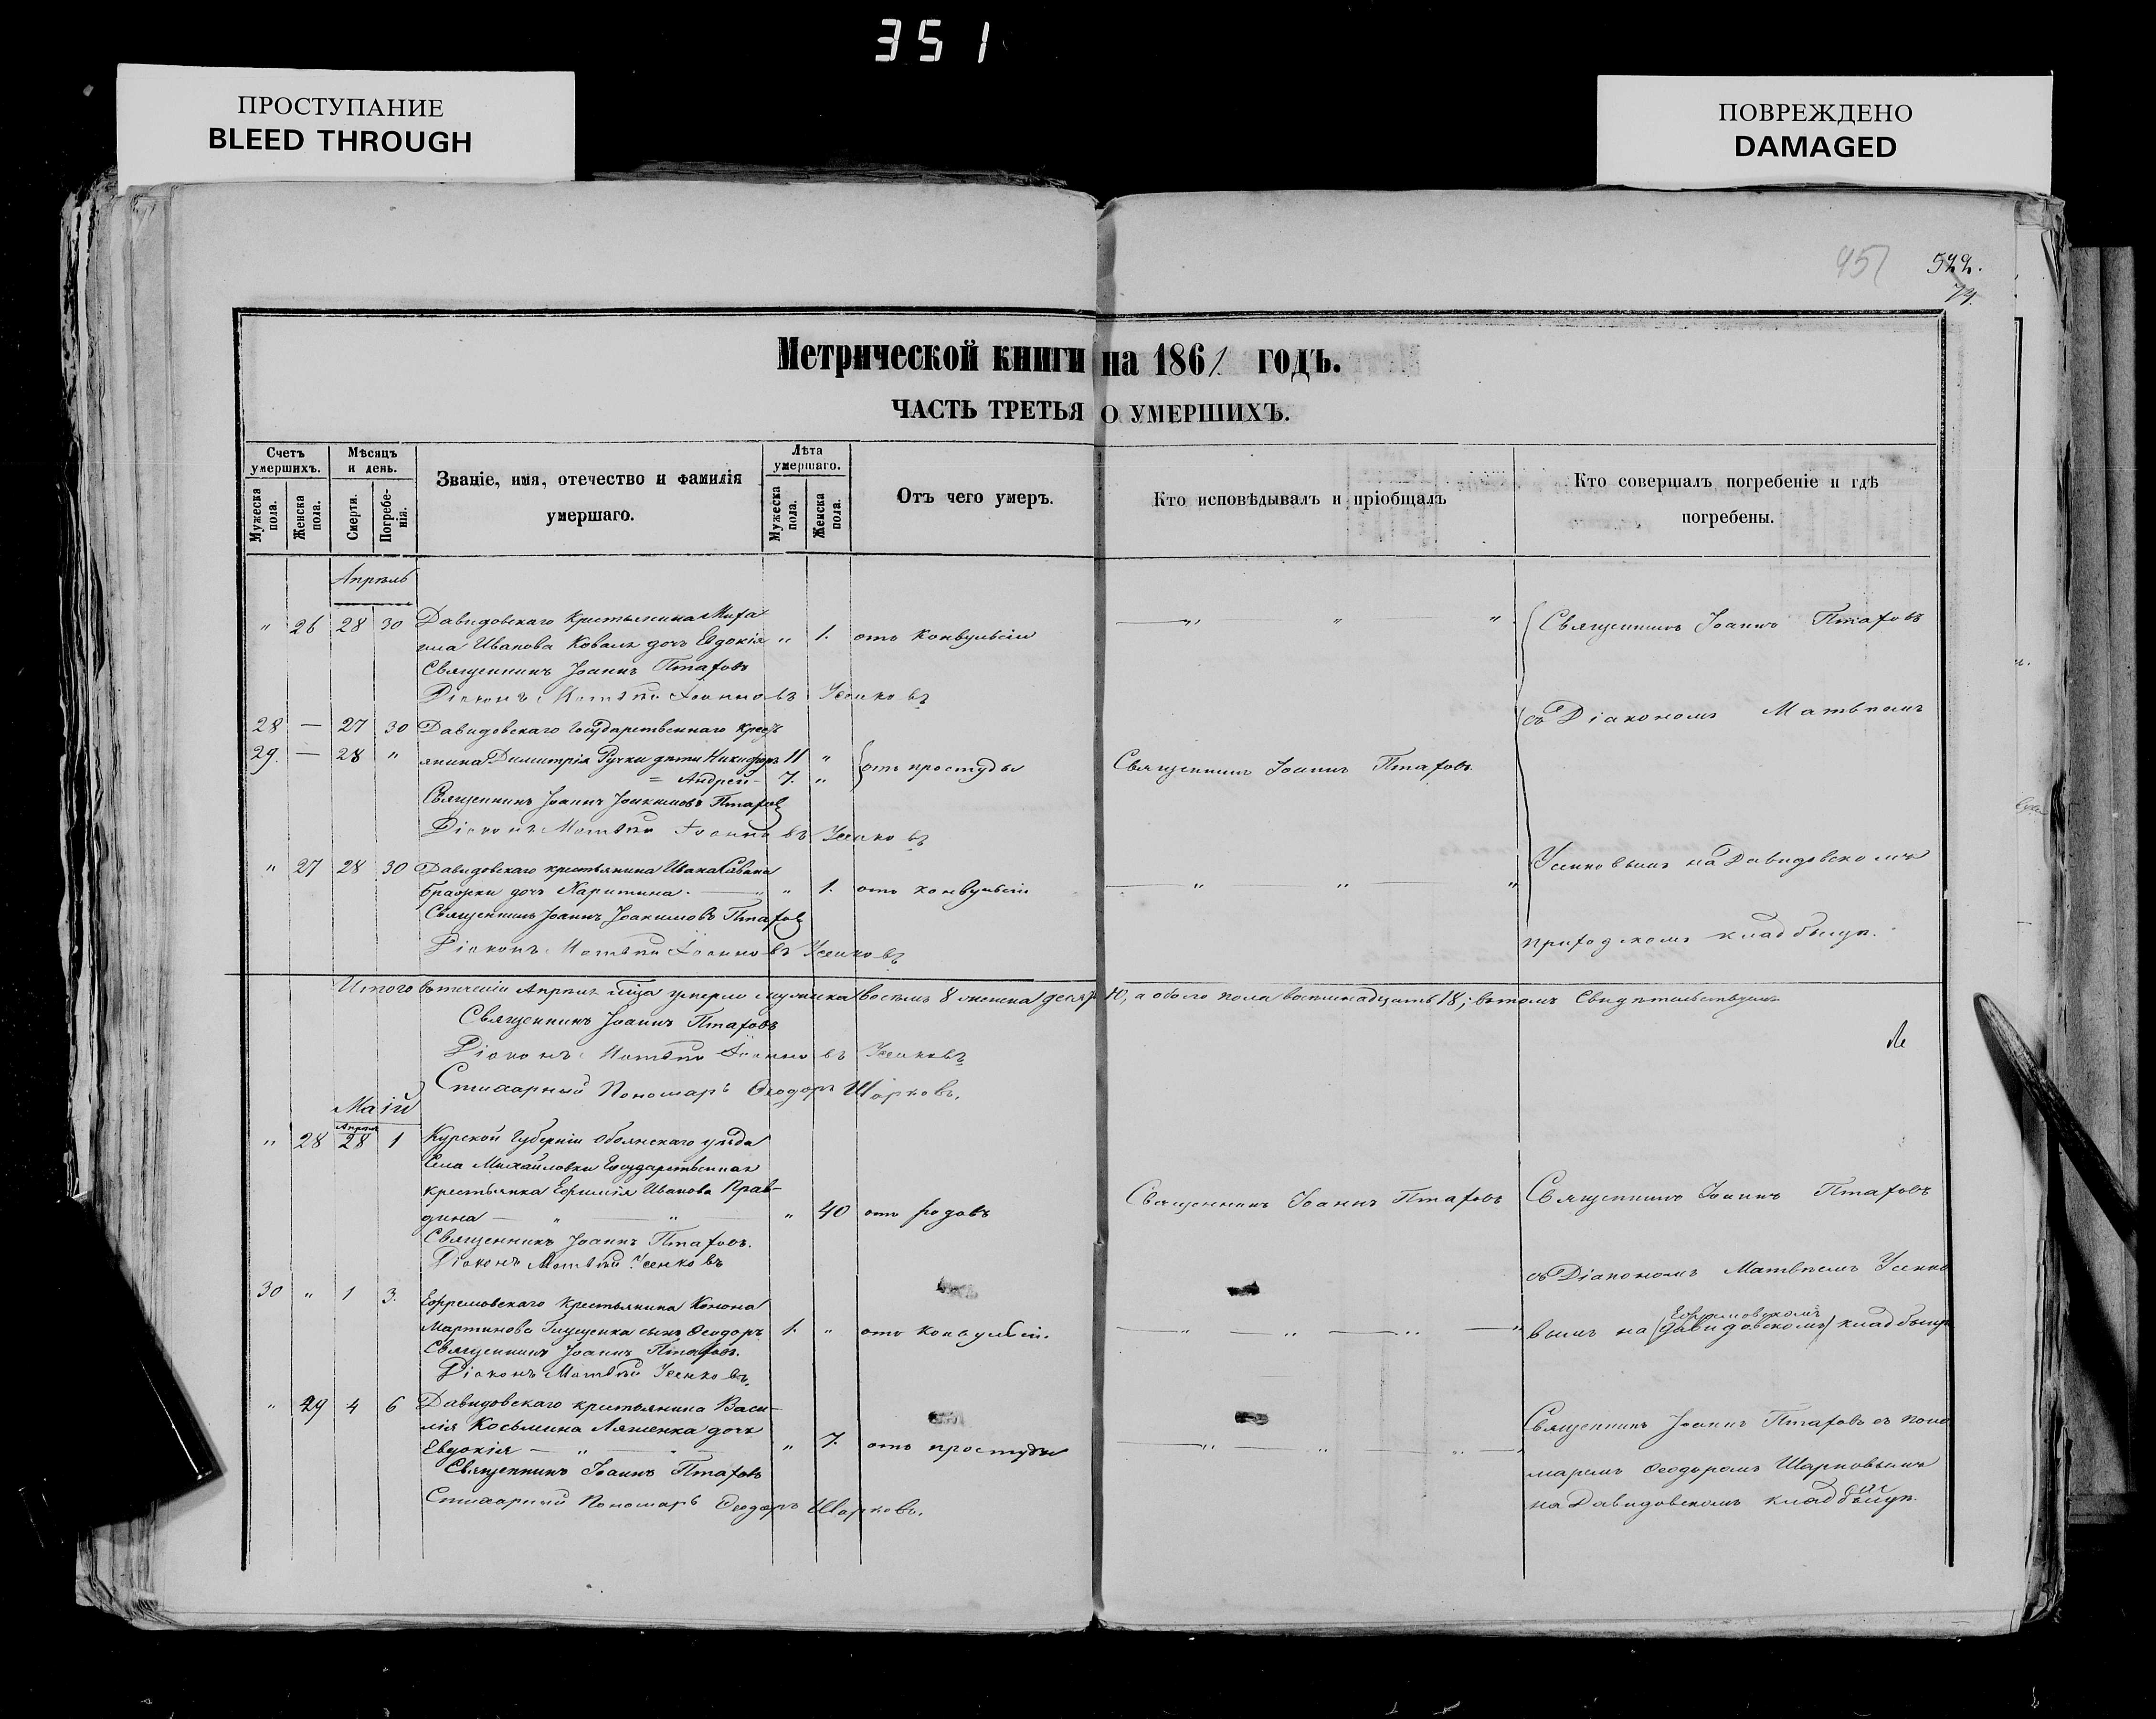 351
ПРОСТУПАНИЕ
BLEED THROUGH
ПОВРЕЖДЕНО
DAMAGED
451 522.
74.
Метрической книги на 1861. годъ.
ЧАСТЬ ТРЕТЬЯ О УМЕРШИХЪ.
Счетъ умершихъ.
Мужеска пола.
Женска пола.
Мѣсяцъ и день.
Смерти.
Погребенія.
Званіе, имя, отечество и фамилія
умершаго.
Лѣта умершаго.
Мужеска пола.
Женска пола.
Отъ чего умеръ.
Кто исповѣдывалъ и пріобщалъ
Кто совершалъ погребеніе и гдѣ
погребены.
Апрѣль
" 26 28 30 Давидовскаго Крестьянина Миха
ила Иванова Коваля дочь Евдокія " 1. отъ Конвульсіи — " " "
Священникъ Іоаннъ Птаховъ
Діаконъ Матвѣй Іоанновъ Усенковъ
28 — 27 30 Давидовскаго Государственнаго крест
29. — 28 " янина Димитрія Ручки дѣти Никифоръ 11 "
= Андрей — 7. " отъ простуды Священникъ Іоаннъ Птаховъ
Священникъ Іоаннъ Іоакимовъ Птаховъ
Діаконъ Матвѣй Іоанновъ Усенковъ
" 27 28 30 Давидовскаго крестьянина Ивана Савина
Бражки дочь Харитина. — " " 1. отъ конвульсіи — " " "
Священникъ Іоаннъ Іоакимовъ Птаховъ
Діаконъ Матвѣй Іоанновъ Усенковъ
Священникъ Іоаннъ Птаховъ
съ Діакономъ Матвѣемъ
Усенковымъ на Давидовскомъ
приходскомъ кладбищѣ.
Итого въ теченіи Апрѣля мѣсяца умерло мужеска восемь 8 женска десять 10, а обоего пола восемнадцать 18; въ томъ Свидѣтельствуемъ
Священникъ Іоаннъ Птаховъ
Діаконъ Матвѣй Іоанновъ Усенковъ
Стихарный Пономарь Ѳеодоръ Шарковъ.
Маій
Апрѣля
" 28 28 1 Курской Губерніи Обоянскаго уѣзда
Села Михайловки Государственная
крестьянка Ефимія Иванова Прав-
дина — " — " " 40 отъ родовъ Священникъ Іоаннъ Птаховъ
Священникъ Іоаннъ Птаховъ.
Діаконъ Матвѣй Усенковъ
Священникъ Іоаннъ Птаховъ
съ Діакономъ Матвѣемъ Усенко
Ефремовскомъ
вымъ на (Давидовскомъ) кладбищѣ
30 " 1 3. Ефремовскаго Крестьянина Конона
Мартинова сынъ Ѳеодоръ 1. " отъ Конвульсіи. — " — " — " — "
Священникъ Іоаннъ Птаховъ.
Діаконъ Матвѣй Усенковъ.
" 29 4 6 Давидовскаго крестьянина Васи-
лія Косьмина Ляшенка дочь
Евдокія — " — " " 7. отъ простуды — " — " — " —
Священникъ Іоаннъ Птаховъ
Стихарный Пономарь Ѳеодоръ Шарковъ.
Священникъ Іоаннъ Птаховъ съ поно
маремъ Ѳеодоромъ Шарковымъ
на Давидовскомъ кладбищѣ.